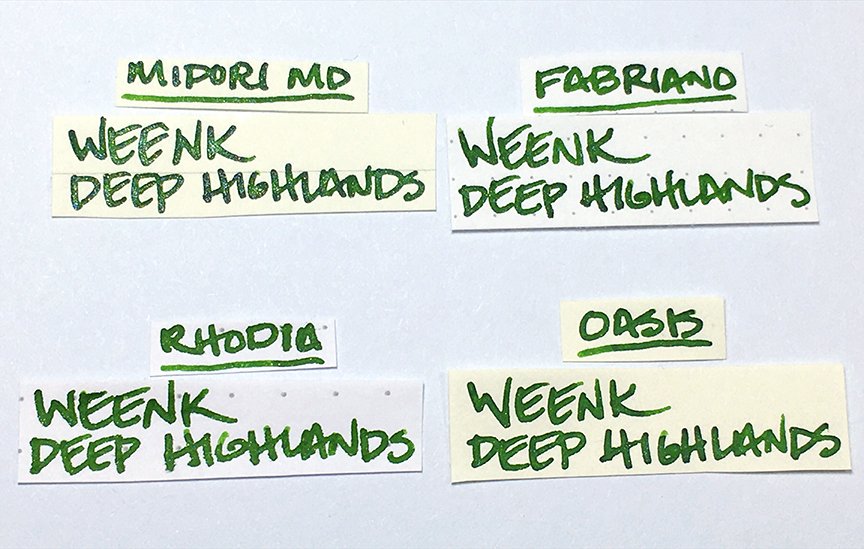 MIDORI MD
WEENK
DEEP HIGHLANDS
FABRIANO
WEENK
DEEP HIGHLANDS
RHODIA
WEENK
DEEP HIGHLANDS
OASIS
WEENK
DEEP HIGHLANDS